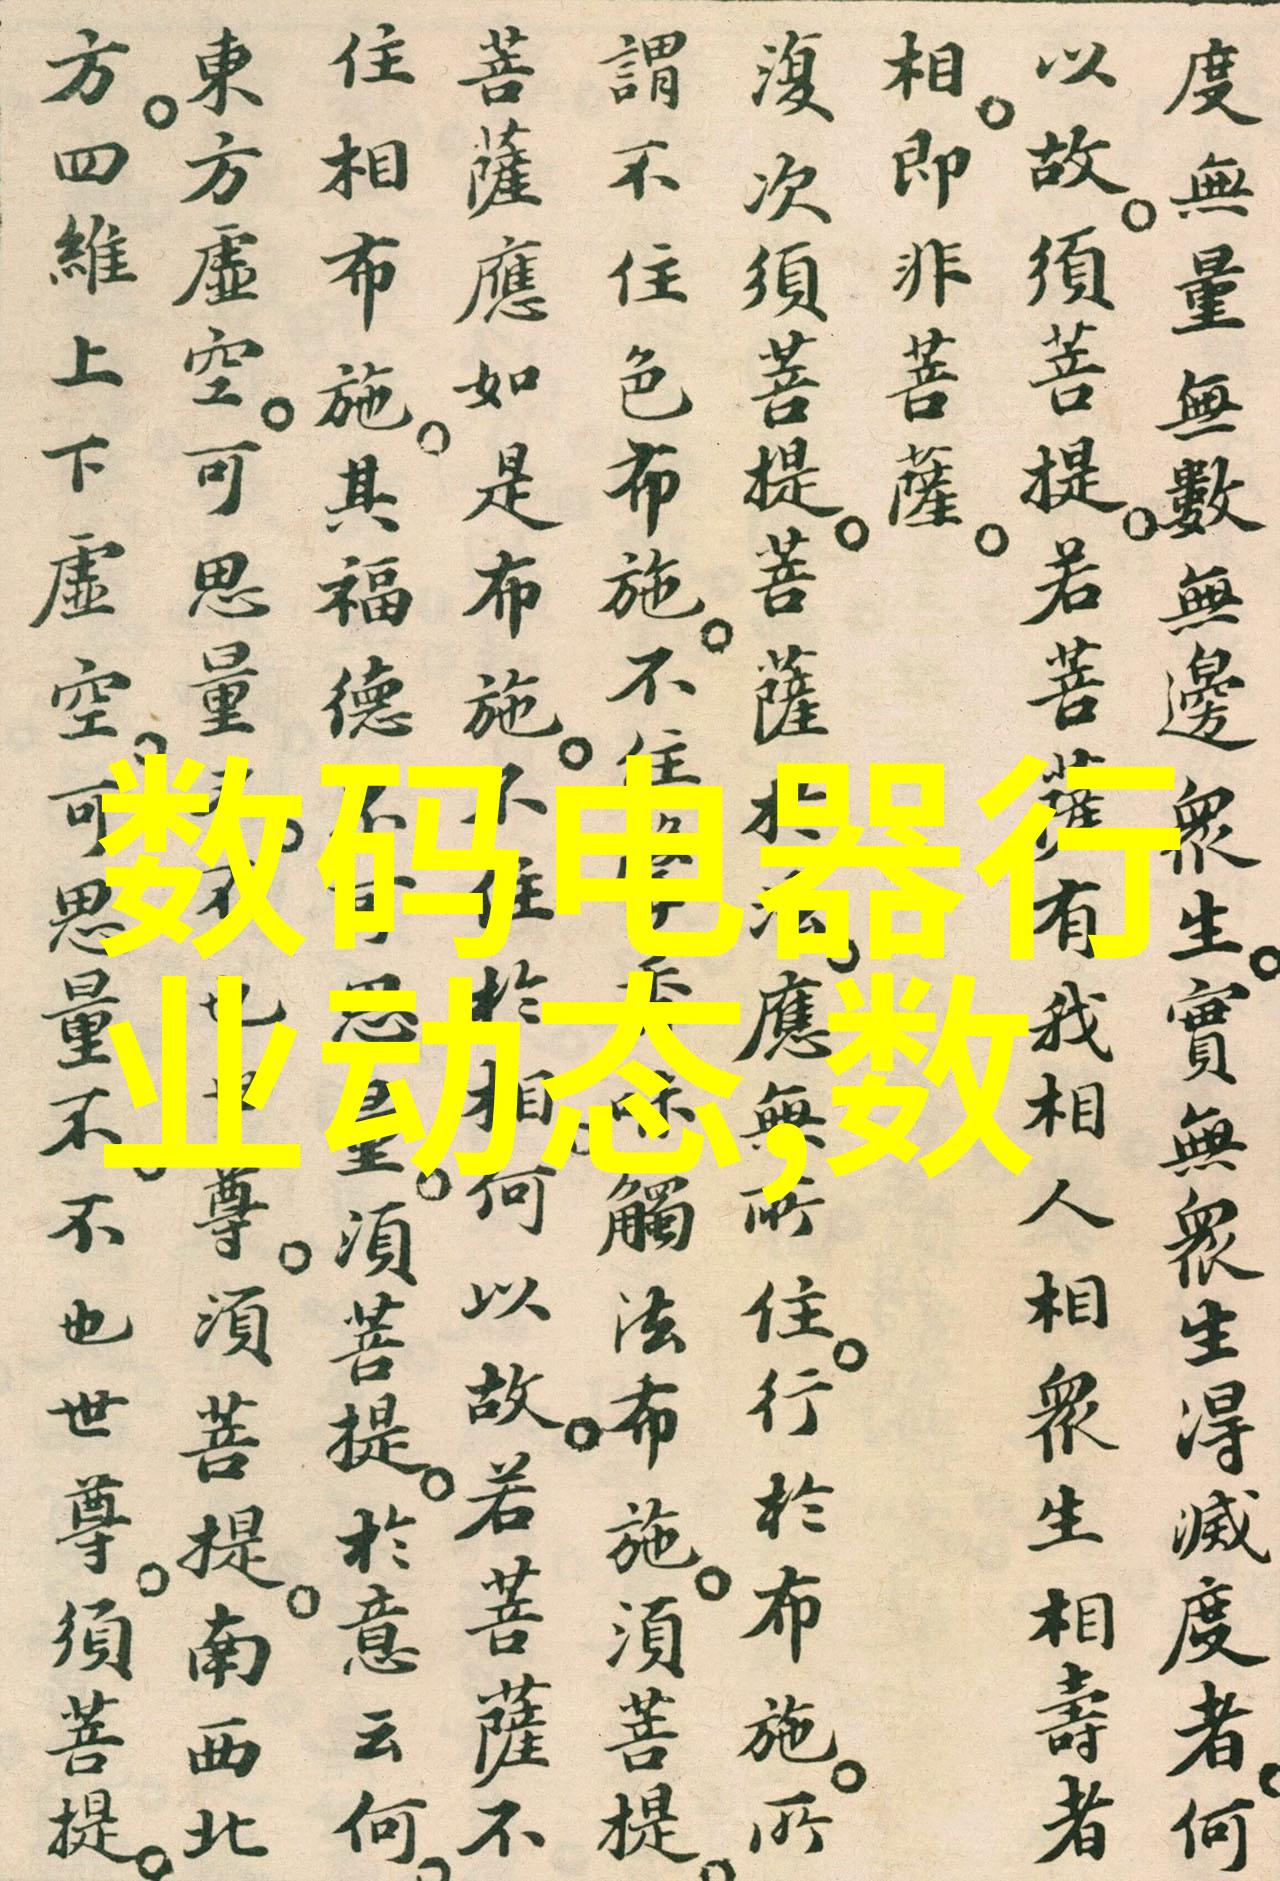 度無量無數無邊眾生。實無眾生得滅度者。何
以故。須菩提。若菩薩有我相人相眾生相壽者
相。即非菩薩。
復次須菩提。菩薩於法。應無所住。行於布施。所
謂不住色布施。不住聲香味觸法布施。須菩提。
菩薩應如是布施。不住於相。何以故。若菩薩不
住相布施。其福德不可思量。須菩提。於意云何。
東方虛空。可思量不。不也世尊。須菩提。南西北
方。四維上下虛空。可思量不。不也世尊。須菩提。
数码电器行
业动态,数